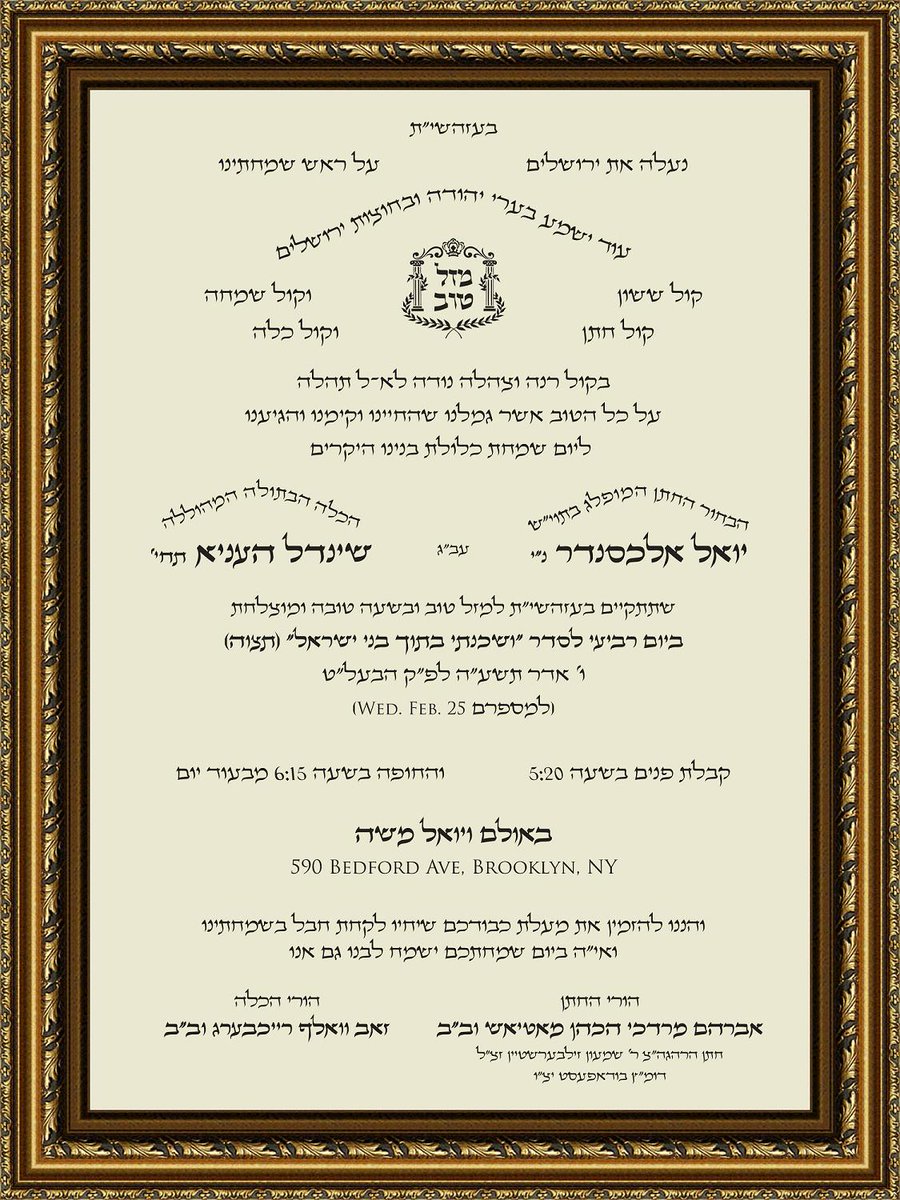 בעזהשי"ת
נעלה את ירושלים על ראש שמחתינו
עוד ישמע בערי יהודה ובחוצות ירושלים
מזל
טוב
קול ששון וקול שמחה
קול חתן וקול כלה
בקול רנה וצהלה נודה לא-ל תהלה
על כל הטוב אשר גמלנו שהחיינו וקימנו והגיענו
ליום שמחת כלולת בנינו היקרים
הבחור החתן המופלג בתוי"ש הכלה הבתולה המהוללה
יואל אלכסנדר ני"י עב"ג שינדל העניא תחי'
שתתקיים בעזהשי"ת למזל טוב ובשעה טובה ומוצלחת
ביום רביעי לסדר "ושכנתי בתוך בני ישראל" (תצוה)
ו' אדר תשע"ה לפ"ק הבעל"ט
(למספרם Wed. Feb. 25)
קבלת פנים בשעה 5:20 והחופה בשעה 6:15 מבעוד יום
באולם ויואל משה
590 Bedford Ave, Brooklyn, NY
והננו להזמין את מעלת כבודכם שיחיו לקחת חבל בשמחתינו
ואי"ה ביום שמחתכם ישמח לבנו גם אנו
הורי החתן הורי הכלה
אברהם מרדכי הכהן מאטיאש וב"ב זאב וואלף רייכבערג וב"ב
חתן הרהגה"צ ר' שמעון זילבערשטיין זצ"ל
דומ"ץ בודאפעסט יצ"ו